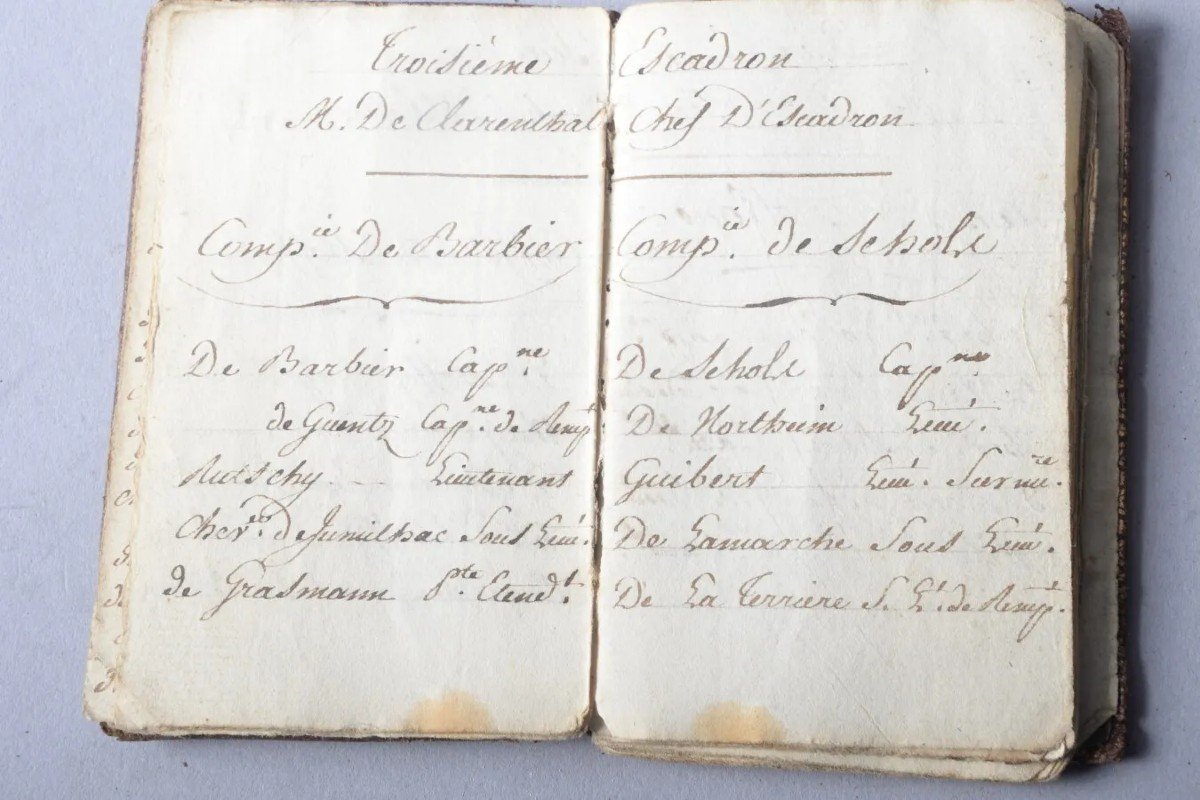 Troisième Escadron
M. De Clarenthal Chef D'Escadron
Comp.ie De Barbier
De Barbier Cap.ne
de Guentz Cap.ne de Remp.t
Rutschy Lieutenant
Chev.er de Jumilhac Sous Lieut.
de Grasmann P.te Etend.t
Comp.ie de Schole
De Schole Cap.ne
De Northeim Lieut.
Guibert Lieut. Surnu.re
De Lamarche Sous Lieut.
De La Terriere S. L.t de Remp.t